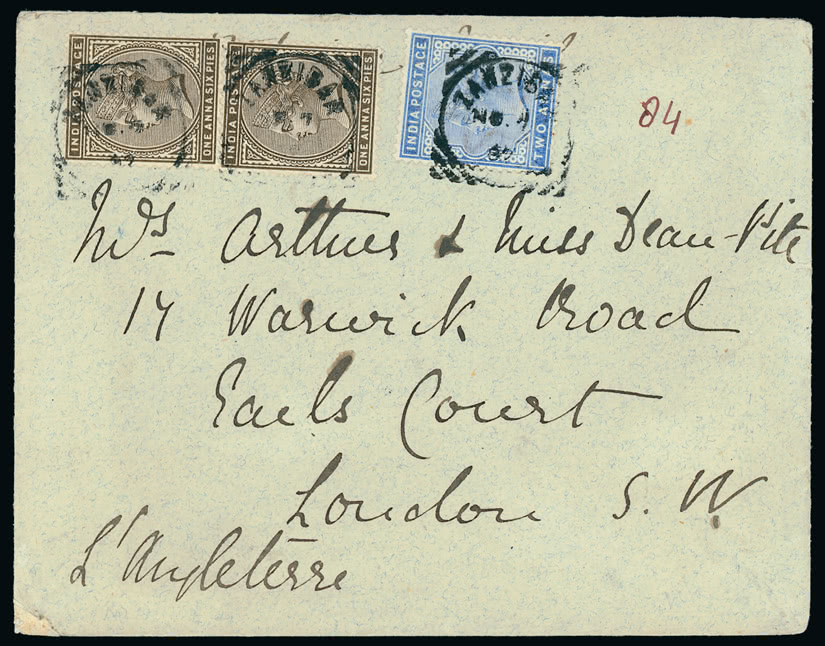 INDIA POSTAGE
ONE ANNA SIX PIES
INDIA POSTAGE
ONE ANNA SIX PIES
INDIA POSTAGE
TWO ANNAS
ZANZIBAR
ZANZIBAR
ZANZIB
84
Mrs Arthur & Miss Dean-Pite
17 Warwick Road
Earls Court
London S.W
L'Angleterre